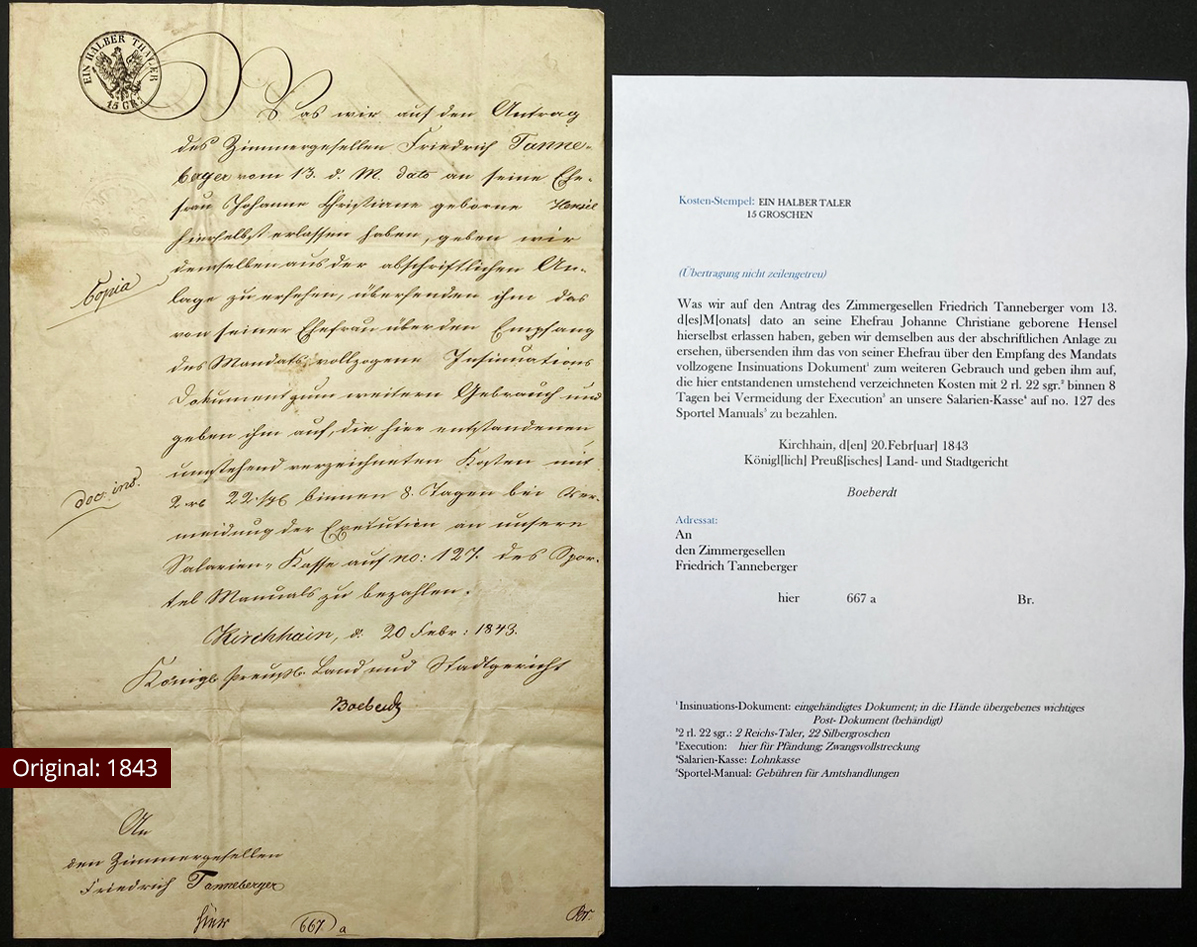 EIN HALBER THALER
15 GR:
Was wir auf den Antrag
des Zimmergesellen Friedrich Tanne-
berger vom 13. d. M. dato an seine Ehe-
frau Johanne Christiane geborne Hensel
hierselbst erlassen haben, geben wir
demselben aus der abschriftlichen An-
lage zu ersehen, übersenden ihm das
Copia
von seiner Ehefrau über den Empfang
des Mandats vollzogene Insinuations
Dokument zum weitern Gebrauch und
geben ihm auf, die hier entstandenen,
umstehend verzeichneten Kosten mit
doc. ins.
2 rl 22 sgr binnen 8. Tagen bei Ver-
meidung der Execution an unsere
Salarien-Kasse auf no: 127. des Spor-
tel Manuals zu bezahlen.
Kirchhain, d. 20 Febr: 1843.
Königl. Preuß. Land und Stadtgericht
Boeberdt
Original: 1843
An
den Zimmergesellen
Friedrich Tanneberger
hier 667. a Br.
Kosten-Stempel: EIN HALBER TALER
15 GROSCHEN
(Übertragung nicht zeilengetreu)
Was wir auf den Antrag des Zimmergesellen Friedrich Tanneberger vom 13.
d[es]M[onats] dato an seine Ehefrau Johanne Christiane geborene Hensel
hierselbst erlassen haben, geben wir demselben aus der abschriftlichen Anlage zu
ersehen, übersenden ihm das von seiner Ehefrau über den Empfang des Mandats
vollzogene Insinuations Dokument¹ zum weiteren Gebrauch und geben ihm auf,
die hier entstandenen umstehend verzeichneten Kosten mit 2 rl. 22 sgr.² binnen 8
Tagen bei Vermeidung der Execution³ an unsere Salarien-Kasse⁴ auf no. 127 des
Sportel Manuals⁵ zu bezahlen.
Kirchhain, d[en] 20.Febr[uar] 1843
Königl[lich] Preuß[isches] Land- und Stadtgericht
Boeberdt
Adressat:
An
den Zimmergesellen
Friedrich Tanneberger
hier 667 a Br.
¹Insinuations-Dokument: eingehändigtes Dokument; in die Hände übergebenes wichtiges
Post- Dokument (behändigt)
²2 rl. 22 sgr.: 2 Reichs-Taler, 22 Silbergroschen
³Execution: hier für Pfändung; Zwangsvollstreckung
⁴Salarien-Kasse: Lohnkasse
⁵Sportel-Manual: Gebühren für Amtshandlungen